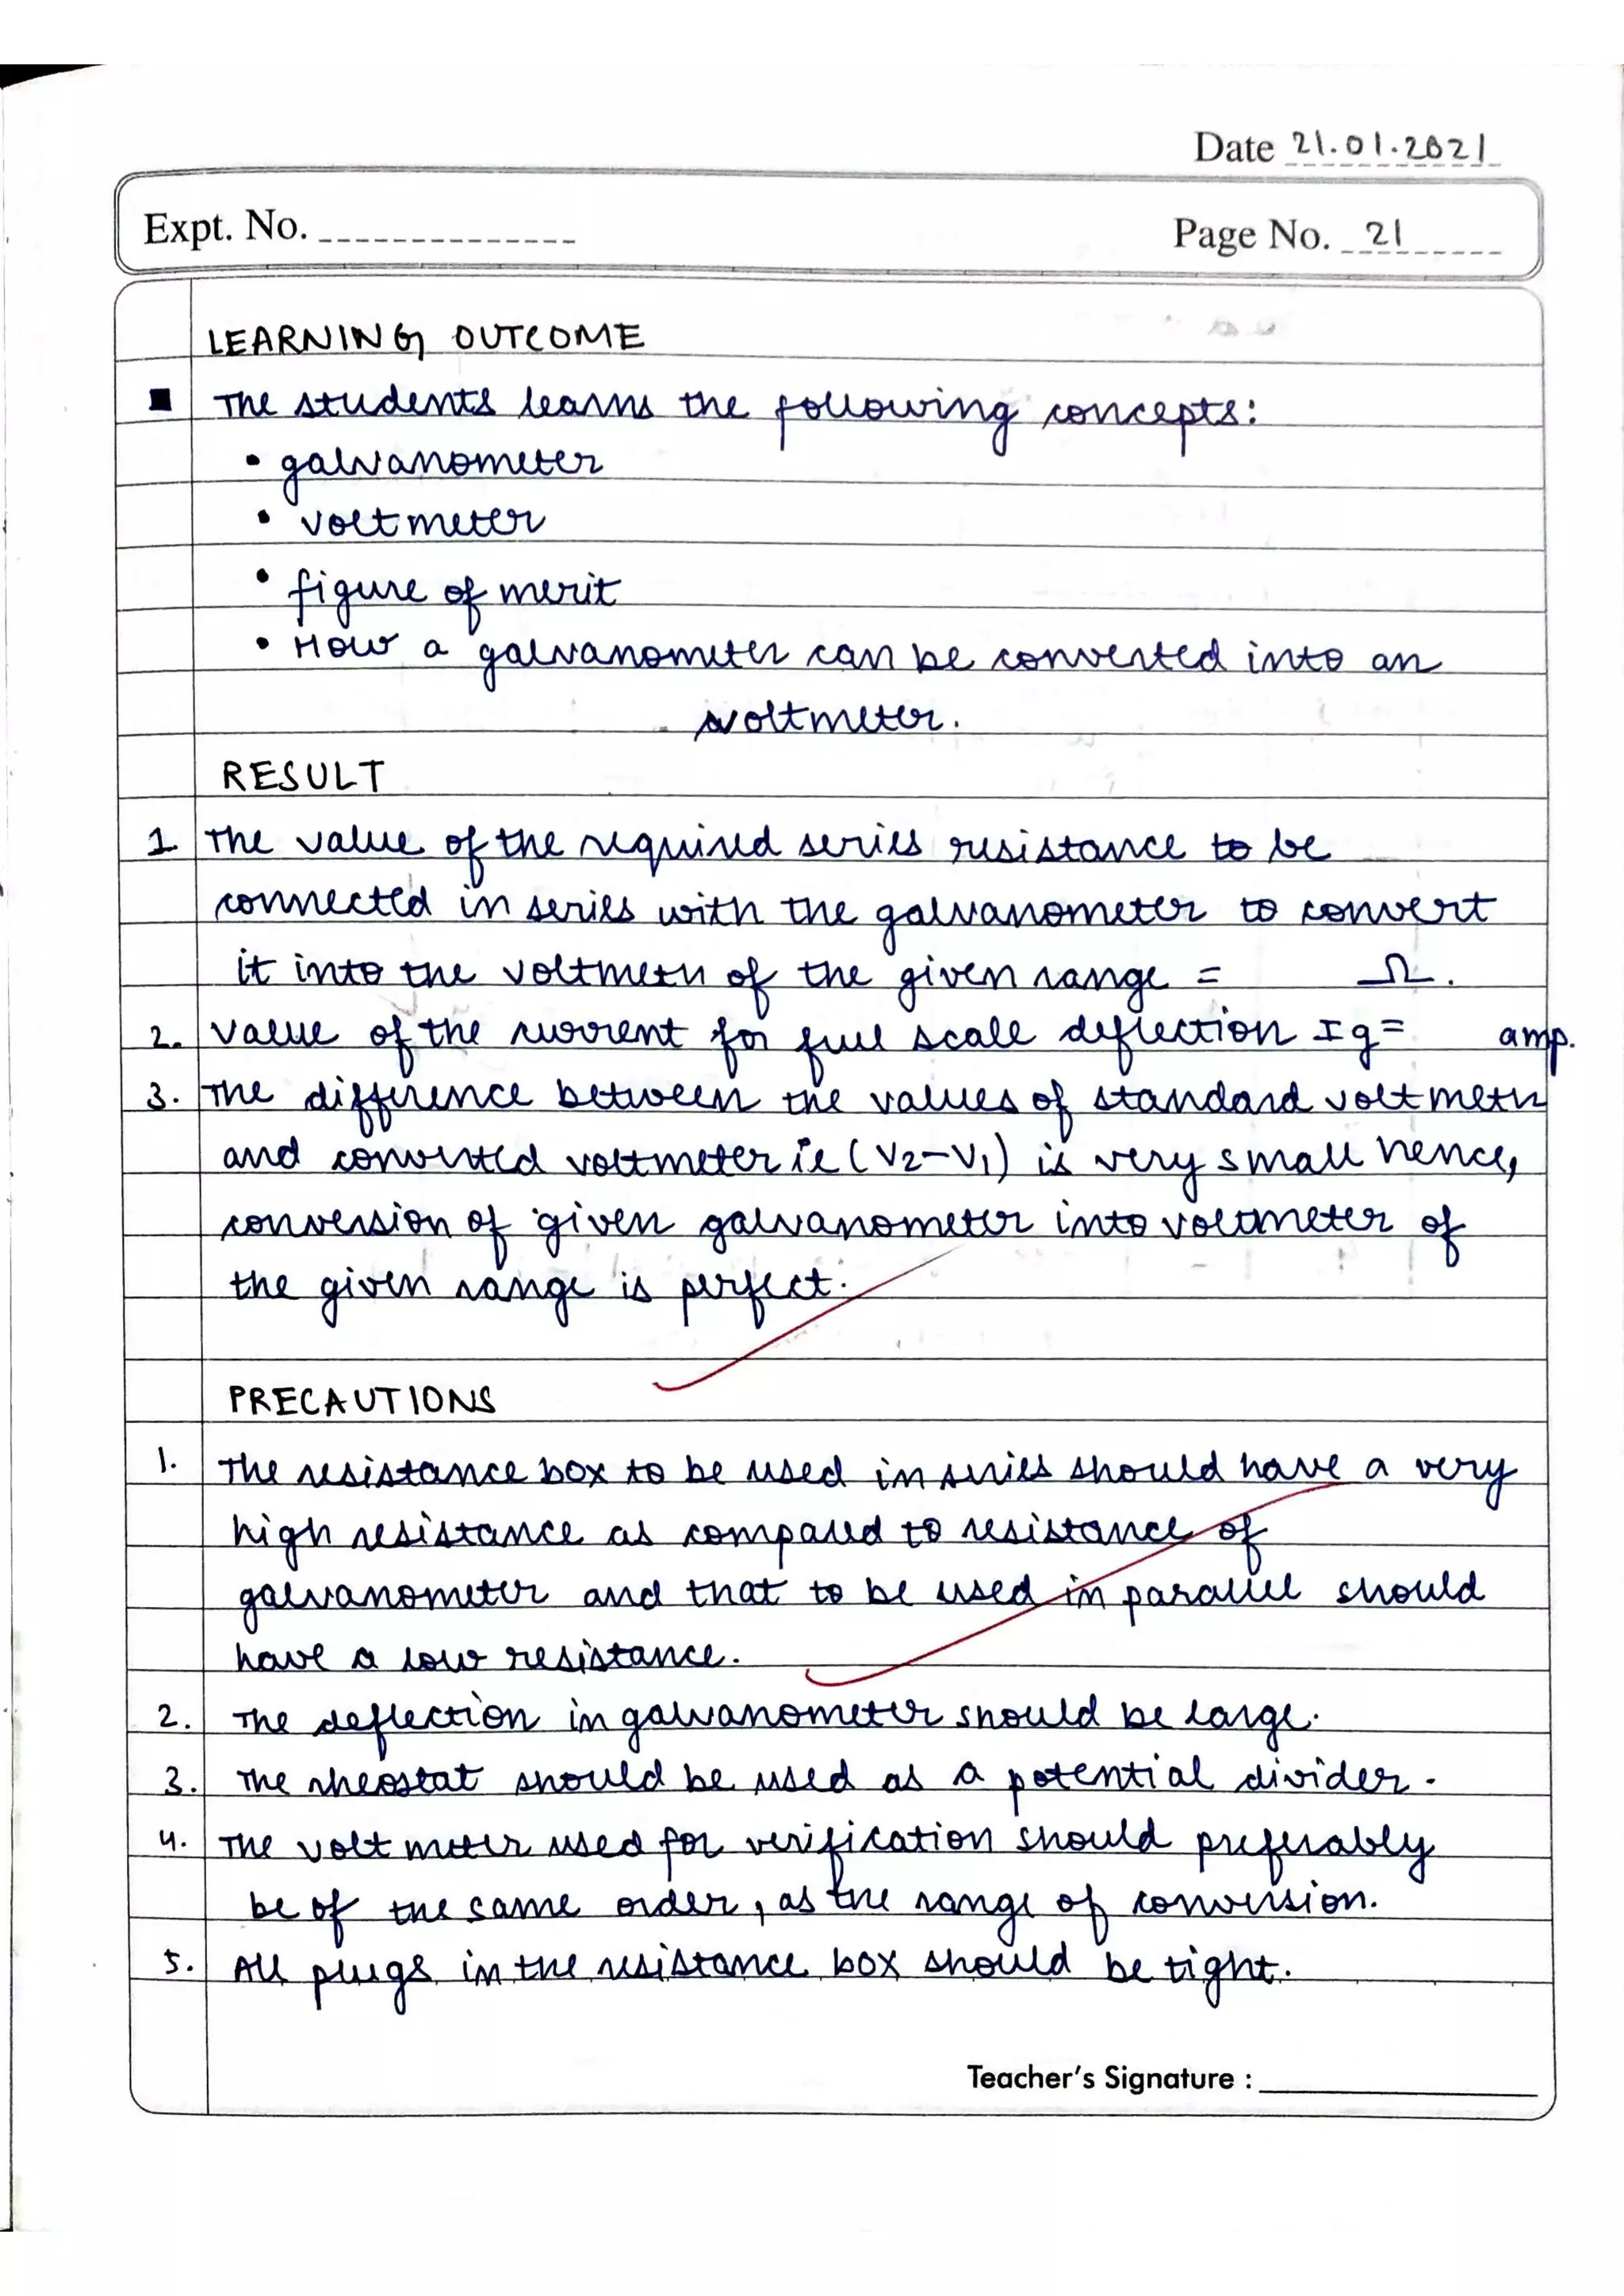 Date 21.01.2021
Expt. No.
Page No. 21
LEARNING OUTCOME
The students learns the following concepts:
• galvanometer
• voltmeter
• figure of merit
• How a galvanometer can be converted into an
voltmeter.
RESULT
1. The value of the required series resistance to be
connected in series with the galvanometer to convert
it into the voltmeter of the given range = Ω.
2. Value of the current for full scale deflection Ig= amp.
3. The difference between the values of standard voltmeter
and converted voltmeter ie (V2-V1) is very small hence,
conversion of given galvanometer into voltmeter of
the given range is perfect.
PRECAUTIONS
1. The resistance box to be used in series should have a very
high resistance as compared to resistance of
galvanometer and that to be used in parallel should
have a low resistance.
2. The deflection in galvanometer should be large.
3. The rheostat should be used as a potential divider.
4. The voltmeter used for verification should preferably
be of the same order, as the range of conversion.
5. All plugs in the resistance box should be tight.
Teacher's Signature :